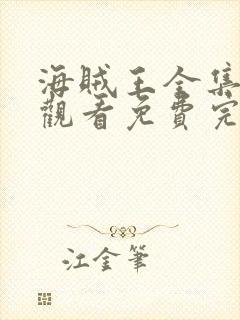 海賊王全集
觀看免費完
江金筆